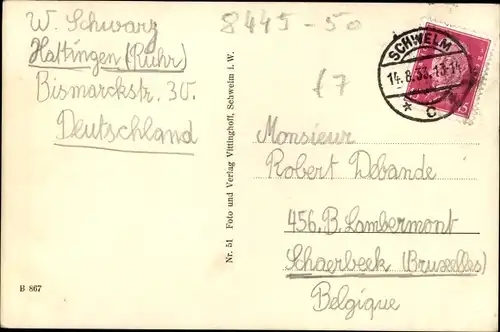 W. Schwarz
Hattingen (Ruhr)
Bismarckstr. 30.
Deutschland
8445-50
SCHWELM
14.8.33.13-14
* C
Monsieur
Robert Debande
456. B. Lambermont
Schaerbeek (Bruxelles)
Belgique
Nr. 51 Foto und Verlag Vittinghoff, Schwelm i. W.
B 867